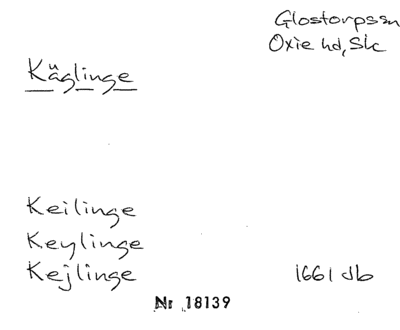 Glostorpssn
Oxie hd, Sk
Käglinge
Keilinge
Keylinge
Kejlinge 1661 Jb
Nr 18139